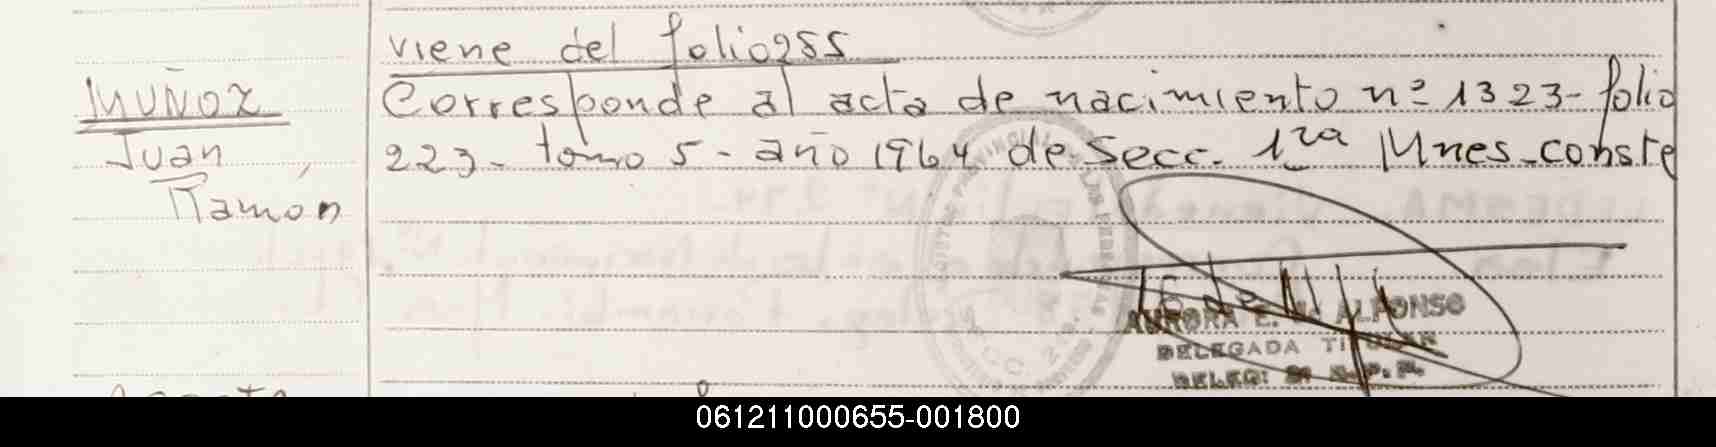 viene del folio 255
MUÑOZ
Corresponde al acta de nacimiento nº 1323- folio
Juan
223- tomo 5- año 1964 de Secc. 1ra Mnes-conste
Ramón
AURORA E. ALFONSO
DELEGADA TITULAR
061211000655-001800